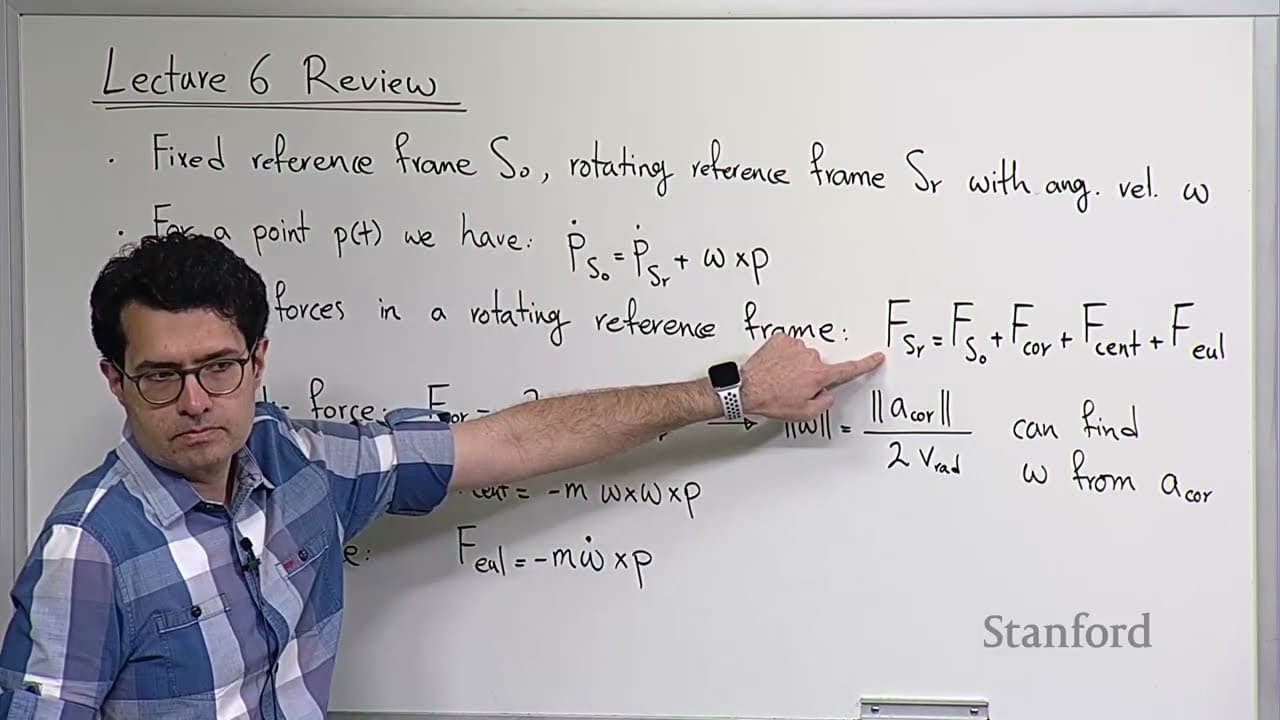 Lecture 6 Review
· Fixed reference frame S₀, rotating reference frame Sᵣ with ang. vel. ω
· For a point p(t) we have: ṗ_S₀ = ṗ_Sᵣ + ω × p
forces in a rotating reference frame: F_Sᵣ = F_S₀ + F_cor + F_cent + F_eul
force: F_cor = → ‖ω‖ = ‖a_cor‖ / 2 v_rad can find
ω from a_cor
cent = -m ω×ω×p
F_eul = -m ω̇ × p
Stanford